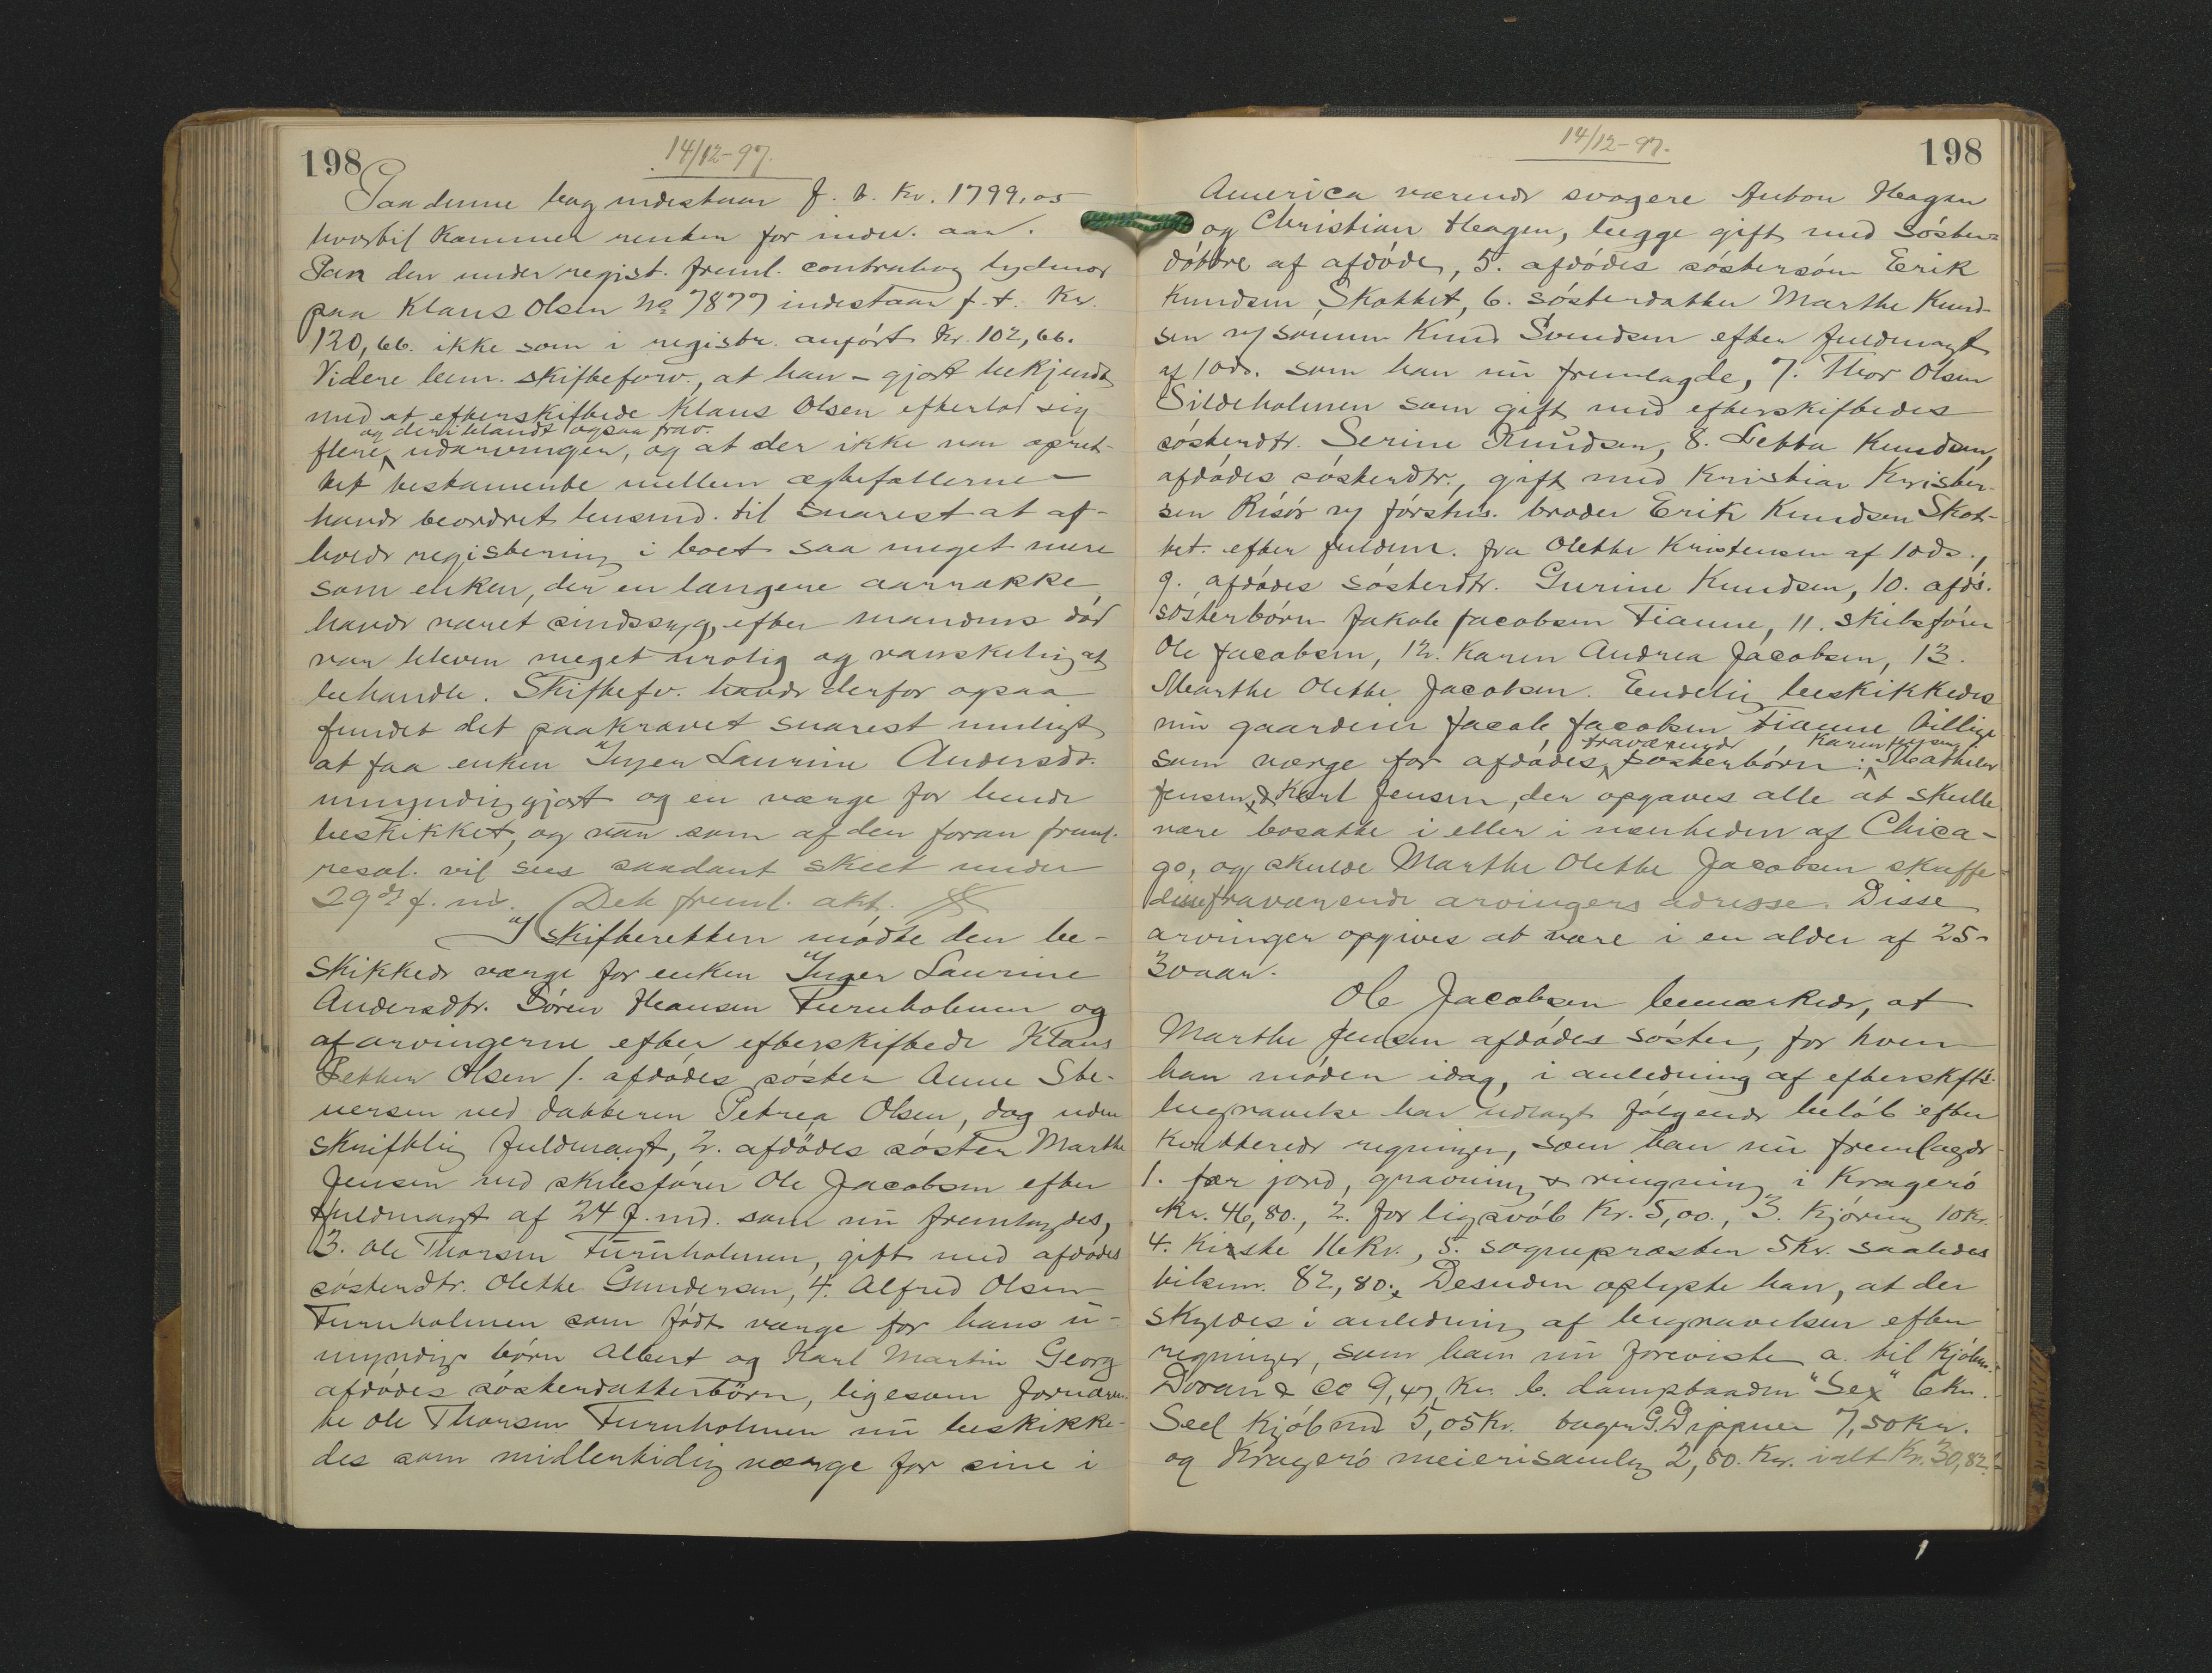 198
14/12-97.
Paa denne bog indestaar f. t. Kr. 1799,05
hvortil kommer renten for indev. aar.
Paa den under regist. freml. contrabog lydende
paa Klaus Olsen No 7877 indestaar f. t. Kr.
120,66. ikke som i registr. anført Kr. 102,66.
Videre bem. skifteforv., at han - gjort bekjendt
med at efterskiftede Klaus Olsen efterlod sig
og deriblandt ogsaa frav.
flere udarvinger, og at der ikke var opret-
tet testamente mellem ægtefællerne -
havde beordret lensmd. til snarest at af-
holde registrering i boet saa meget mere
som enken, der en længere aarrække
havde været sindssyg, efter mandens død
var bleven meget urolig og vanskelig at
behandle. Skiftefv. havde derfor ogsaa
fundet det paakrævet snarest muligt
at faa enken Inger Laurine Andersdtr.
umyndiggjort og en værge for hende
beskikket, og var som af den foran freml.
resol. vil sees saadant skeet under
29de f. md. Dek freml. akt.
I skifteretten mødte den be-
skikkede værge for enken Inger Laurine
Andersdtr. Søren Hansen Furuholmen og
af arvingerne efter efterskiftede Klaus
Petter Olsen 1. afdødes søster Anne Ste-
nersen ved datteren Petrea Olsen, dog uden
skriftlig fuldmagt, 2. afdødes søster Marthe
Jensen ved skibsfører Ole Jacobsen efter
fuldmagt af 24 f. md. som nu fremlagdes,
3. Ole Thorsen Furuholmen, gift med afdødes
søsterdtr. Olethe Gundersen, 4. Alfred Olsen
Furuholmen som født værge for hans u-
myndige børn Albert og Karl Martin Georg
afdødes søsterdatterbørn, ligesom fornævn-
te Ole Thorsen Furuholmen nu beskikke-
des som midlertidig værge for sine i
14/12-97.
198
America værende svogere Anton Hagen
og Christian Hagen, begge gift med søster-
døttre af afdøde, 5. afdødes søstersøn Erik
Knudsen Skottet, 6. søsterdatter Marthe Knud-
sen v/ sønnen Knud Svendsen efter fuldmagt
af 10 ds. som han nu fremlagde, 7. Thor Olsen
Sildeholmen som gift med efterskiftedes
søsterdtr. Serine Knudsen, 8. Knudsen,
afdødes søsterdtr., gift med Kristian Kristen-
sen Risør v/ førstnv. broder Erik Knudsen Skot-
tet. efter fuldm. fra Olethe Kristensen af 10 ds.,
9. afdødes søsterdtr. Gurine Knudsen, 10. afds.
søsterbørn Jakob Jacobsen Tianne, 11. skibsfører
Ole Jacobsen, 12. Karen Andrea Jacobsen, 13.
Marthe Olethe Jacobsen. Endelig beskikkedes
nu gaardeier Jacob Jacobsen Tianne tillige
fraværende Karen Jensen
som værge for afdødes søsterbørn: Mathilde
Jensen & Karl Jensen, der opgaves alle at skulle
være bosatte i eller i nærheden af Chica-
go, og skulde Marthe Olethe Jacobsen skaffe
disse fraværende arvingers adresse. Disse
arvinger opgives at være i en alder af 25-
30 aar.
Ole Jacobsen bemærkede, at
Marthe Jensen afdødes søster, for hvem
han møder idag, i anledning af efterskfts.
begravelse har udlagt følgende beløb efter
kvitterede regninger, som han nu fremlagde
1. for jord, gravning & ringning i Kragerø
Kr. 46,80., 2. for ligsvøb Kr. 5,00., 3. Kjøring 10 Kr.
4. Kiste 16 Kr., 5. sognepræsten 5 Kr. saaledes
tilsm. 82,80., Desuden oplyste han, at der
skyldes i anledning af begravelsen efter
regninger, som ham nu foreviste a. til Kjøbm.
Doran & Co 9,47 Kr. b. dampbaaden "Sex" 6 Kr.
Seel Kjøbmd 5,05 Kr. bager G. Dippner 7,50 Kr.
og Kragerø meierisamlg 2,80. Kr. ialt Kr. 30,82.